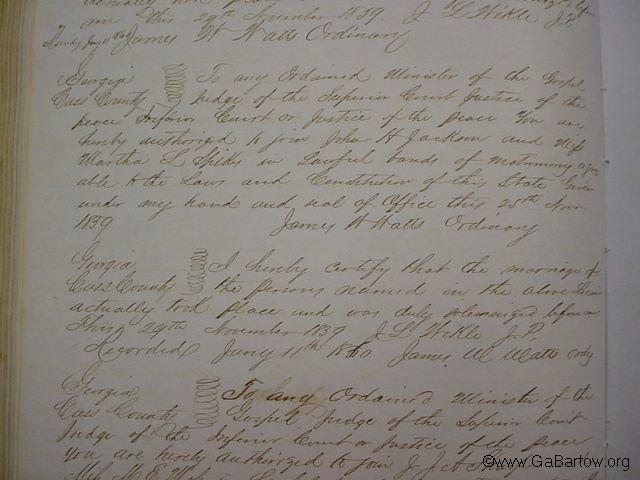 me this 29th November 1839. J L Wikle J.P.
James W Watts Ordinary
Georgia To any Ordained Minister of the Gospel
Cass County Judge of the Superior Court Justice of the
peace Inferior Court or Justice of the peace You are
hereby authorized to join John H Jackson and Miss
Martha L Spikes in Lawful bands of matrimony agree
able to the Laws and Constitution of this State Given
under my hand and seal of Office this 25th Novr
1839 James W Watts Ordinary
Georgia I hereby certify that the marriage of
Cass County the persons named in the above
actually took place and was duly solemnized before me
This 29th November 1839 J L Wikle J.P.
Recorded Jany 11th 1860 James W Watts Ordy
Georgia To any Ordained Minister of the
Cass County Gospel Judge of the Superior Court
Judge of the Inferior Court or Justice of the peace
You are hereby authorized to join J. J. A.
Miss M. E.
©www.GaBartow.org